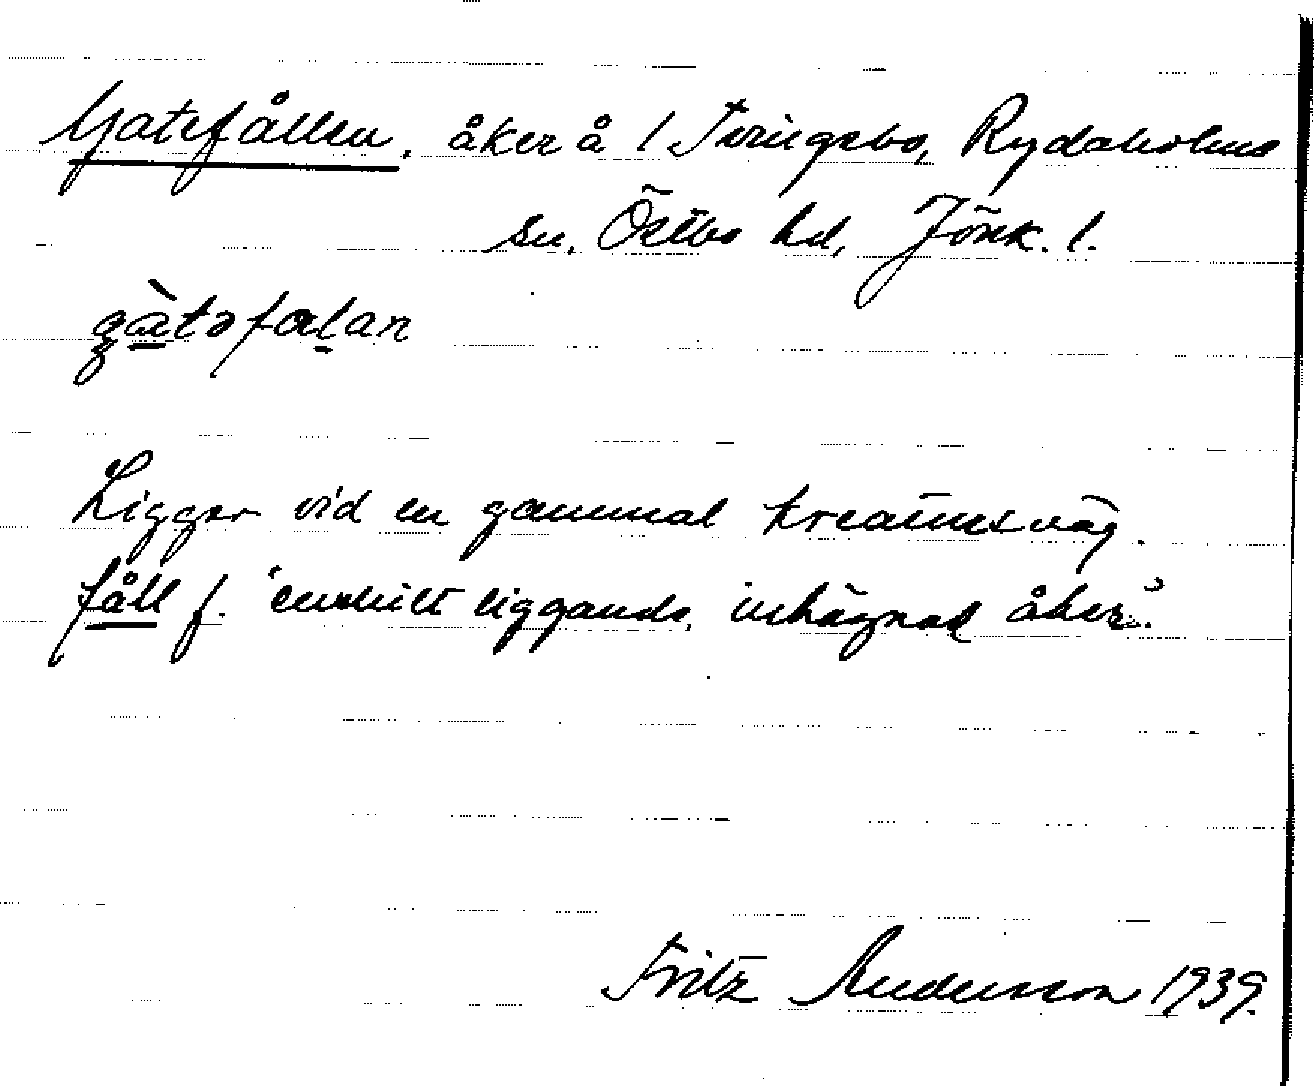 Gatefållen, åker å 1 Tvringsbo, Rydaholms
sn, Östbo hd, Jönk. l.
gàtəfalan
Ligger vid en gammal kreatursväg.
fåll f. 'enskilt liggande, inhägnad åker'.
Fritz Andersson 1939.